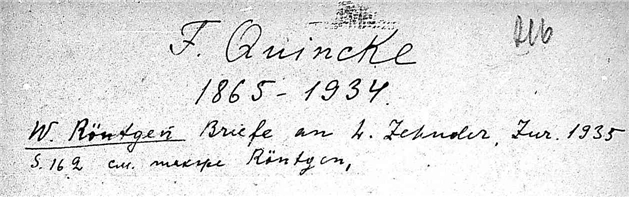 F. Quincke
216
1865-1934.
W. Röntgen Briefe an L. Zehnder, Zur. 1935
S. 162 см. также Röntgen,